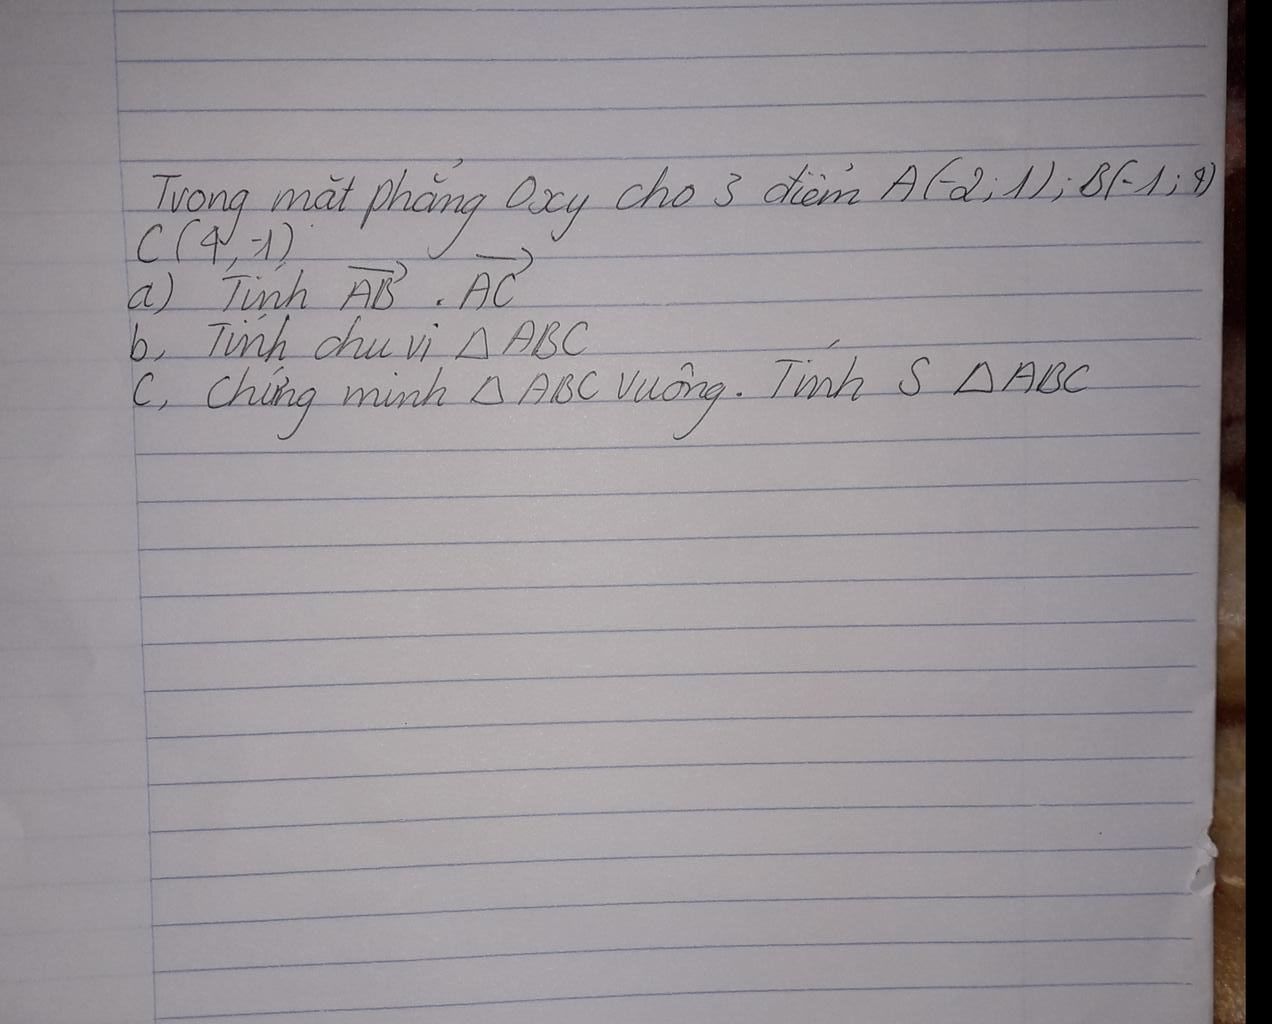 Trong mặt phẳng Oxy cho 3 điểm A(-2; 1); B(-1; 4)
C(4, -1)
a) Tính AB . AC
b, Tính chu vi △ ABC
C, Chứng minh △ ABC vuông. Tính S △ ABC